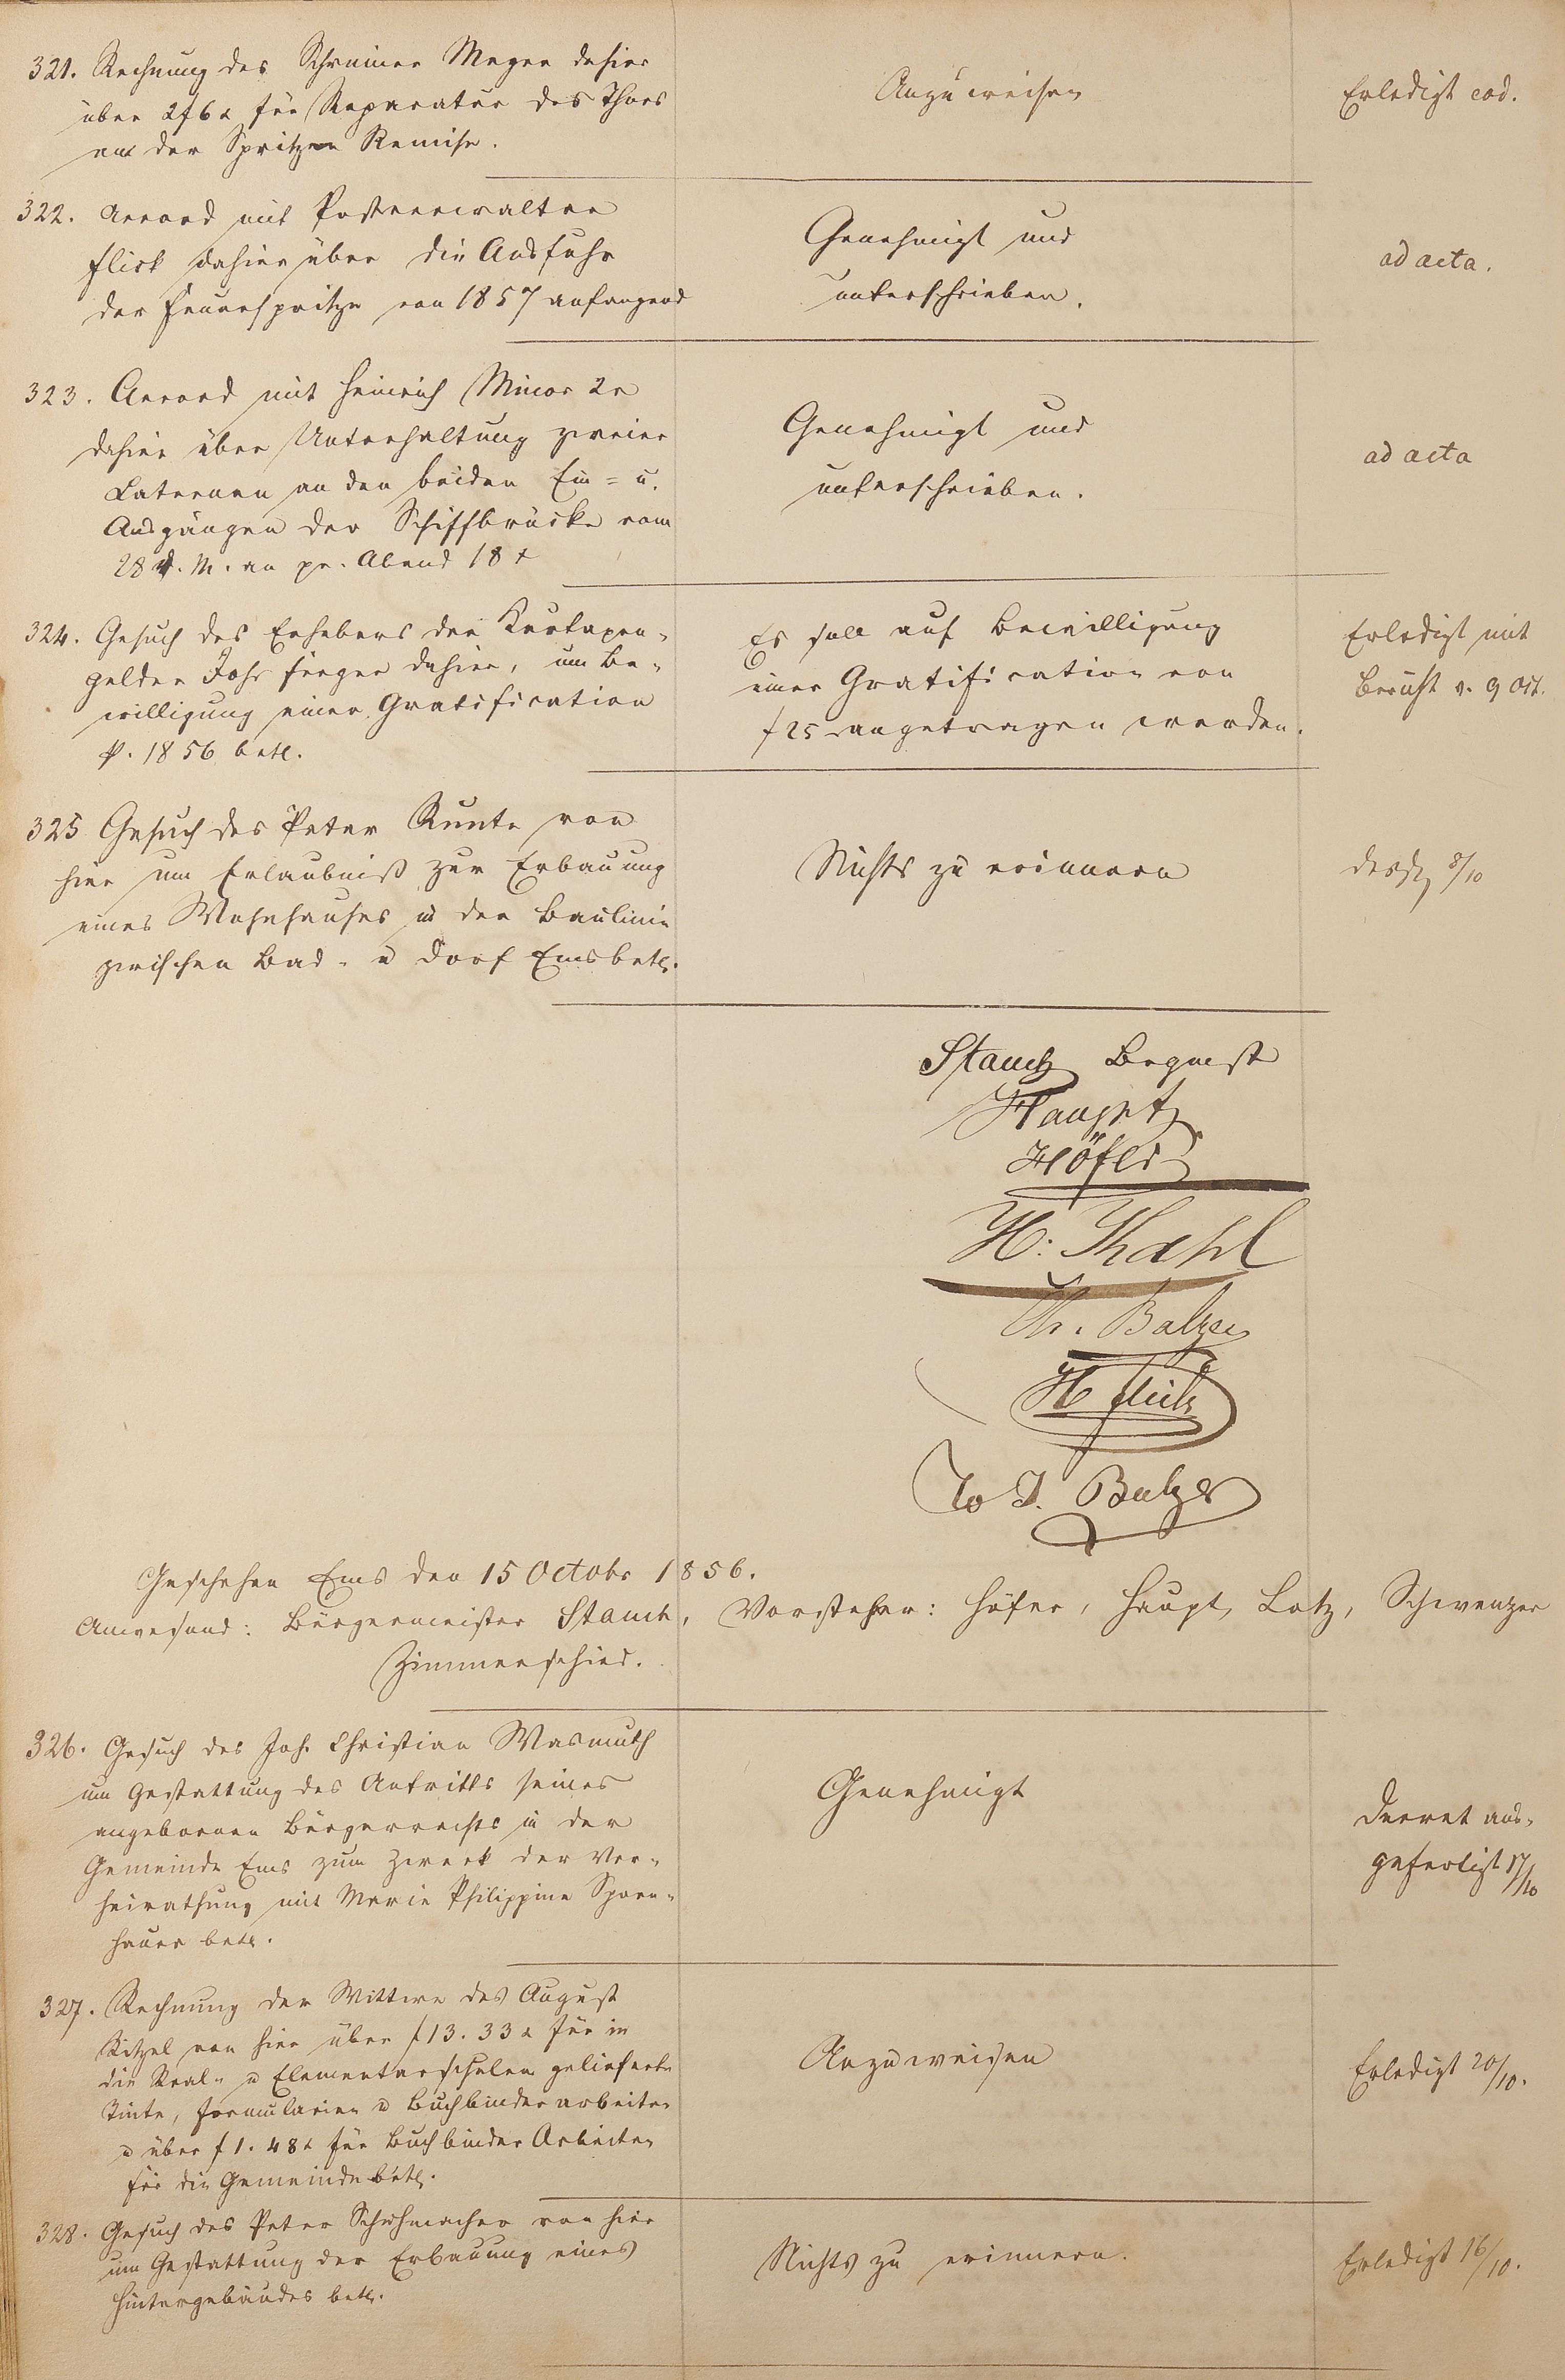 321. Rechnung des Schreiner Meyer dahier
über 2f 6x für Reparatur des Thors
an der Spritzen Remise.
Anzuweisen
Erledigt eod.
322. Accord mit Posthalter
Flick dahier über die Ausfuhr
der Feuerspritze von 1857 anfangend
Genehmigt und
unterschrieben.
ad acta.
323. Accord mit Heinrich Minor 2r
dahier über Unterhaltung zweier
Laternen an den beiden Ein= u.
Ausgängen der Schiffbrücke vom
28 d. M. an pr. Abend 18 x
Genehmigt und
unterschrieben.
ad acta
324. Gesuch des Erhebers der Kurtaxen-
gelder dahier, um Be-
willigung einer Gratification
p. 1856 betr.
Es soll auf Bewilligung
einer Gratification von
f 25 angetragen werden.
Erledigt mit
Bericht v. 9 Oct.
325 Gesuch des Peter Runte von
hier um Erlaubniß zur Erbauung
eines Wohnhauses in der Baulinie
zwischen Bad- u Dorf Ems betr.
Nichts zu erinnern
desgl 8/10
Stauch Bgmst
Haupt
Höfer
H: Kahl
Ch. Balzer
H Flick
J. Balzer
Geschehen Ems den 15 Octobr 1856.
Anwesend: Bürgermeister Stauch, Vorsteher: Höfer, Haupt, Lotz, Schwenzer
Zimmerschied.
326. Gesuch des Joh. Christian Wasmuth
um Gestattung des Antritts seines
angebornen Bürgerrechts in der
Gemeinde Ems zum Zweck der Ver-
heirathung mit Marie Philippine Sporn-
hauer betr.
Genehmigt
Decret aus-
gefertigt 17/10
327. Rechnung der Wittwe des August
Kitzel von hier über f 13. 33 x für in
die Real- u Elementarschulen gelieferte
Tinte, Formularien u Buchbinderarbeiten
u über f 1. 48 x für Buchbinder Arbeiten
für die Gemeinde betr.
Anzuweisen
Erledigt 20/10.
328. Gesuch des Peter Schuhmacher von hier
um Gestattung der Erbauung eines
Hintergebäudes betr.
Nichts zu erinnern.
Erledigt 16/10.